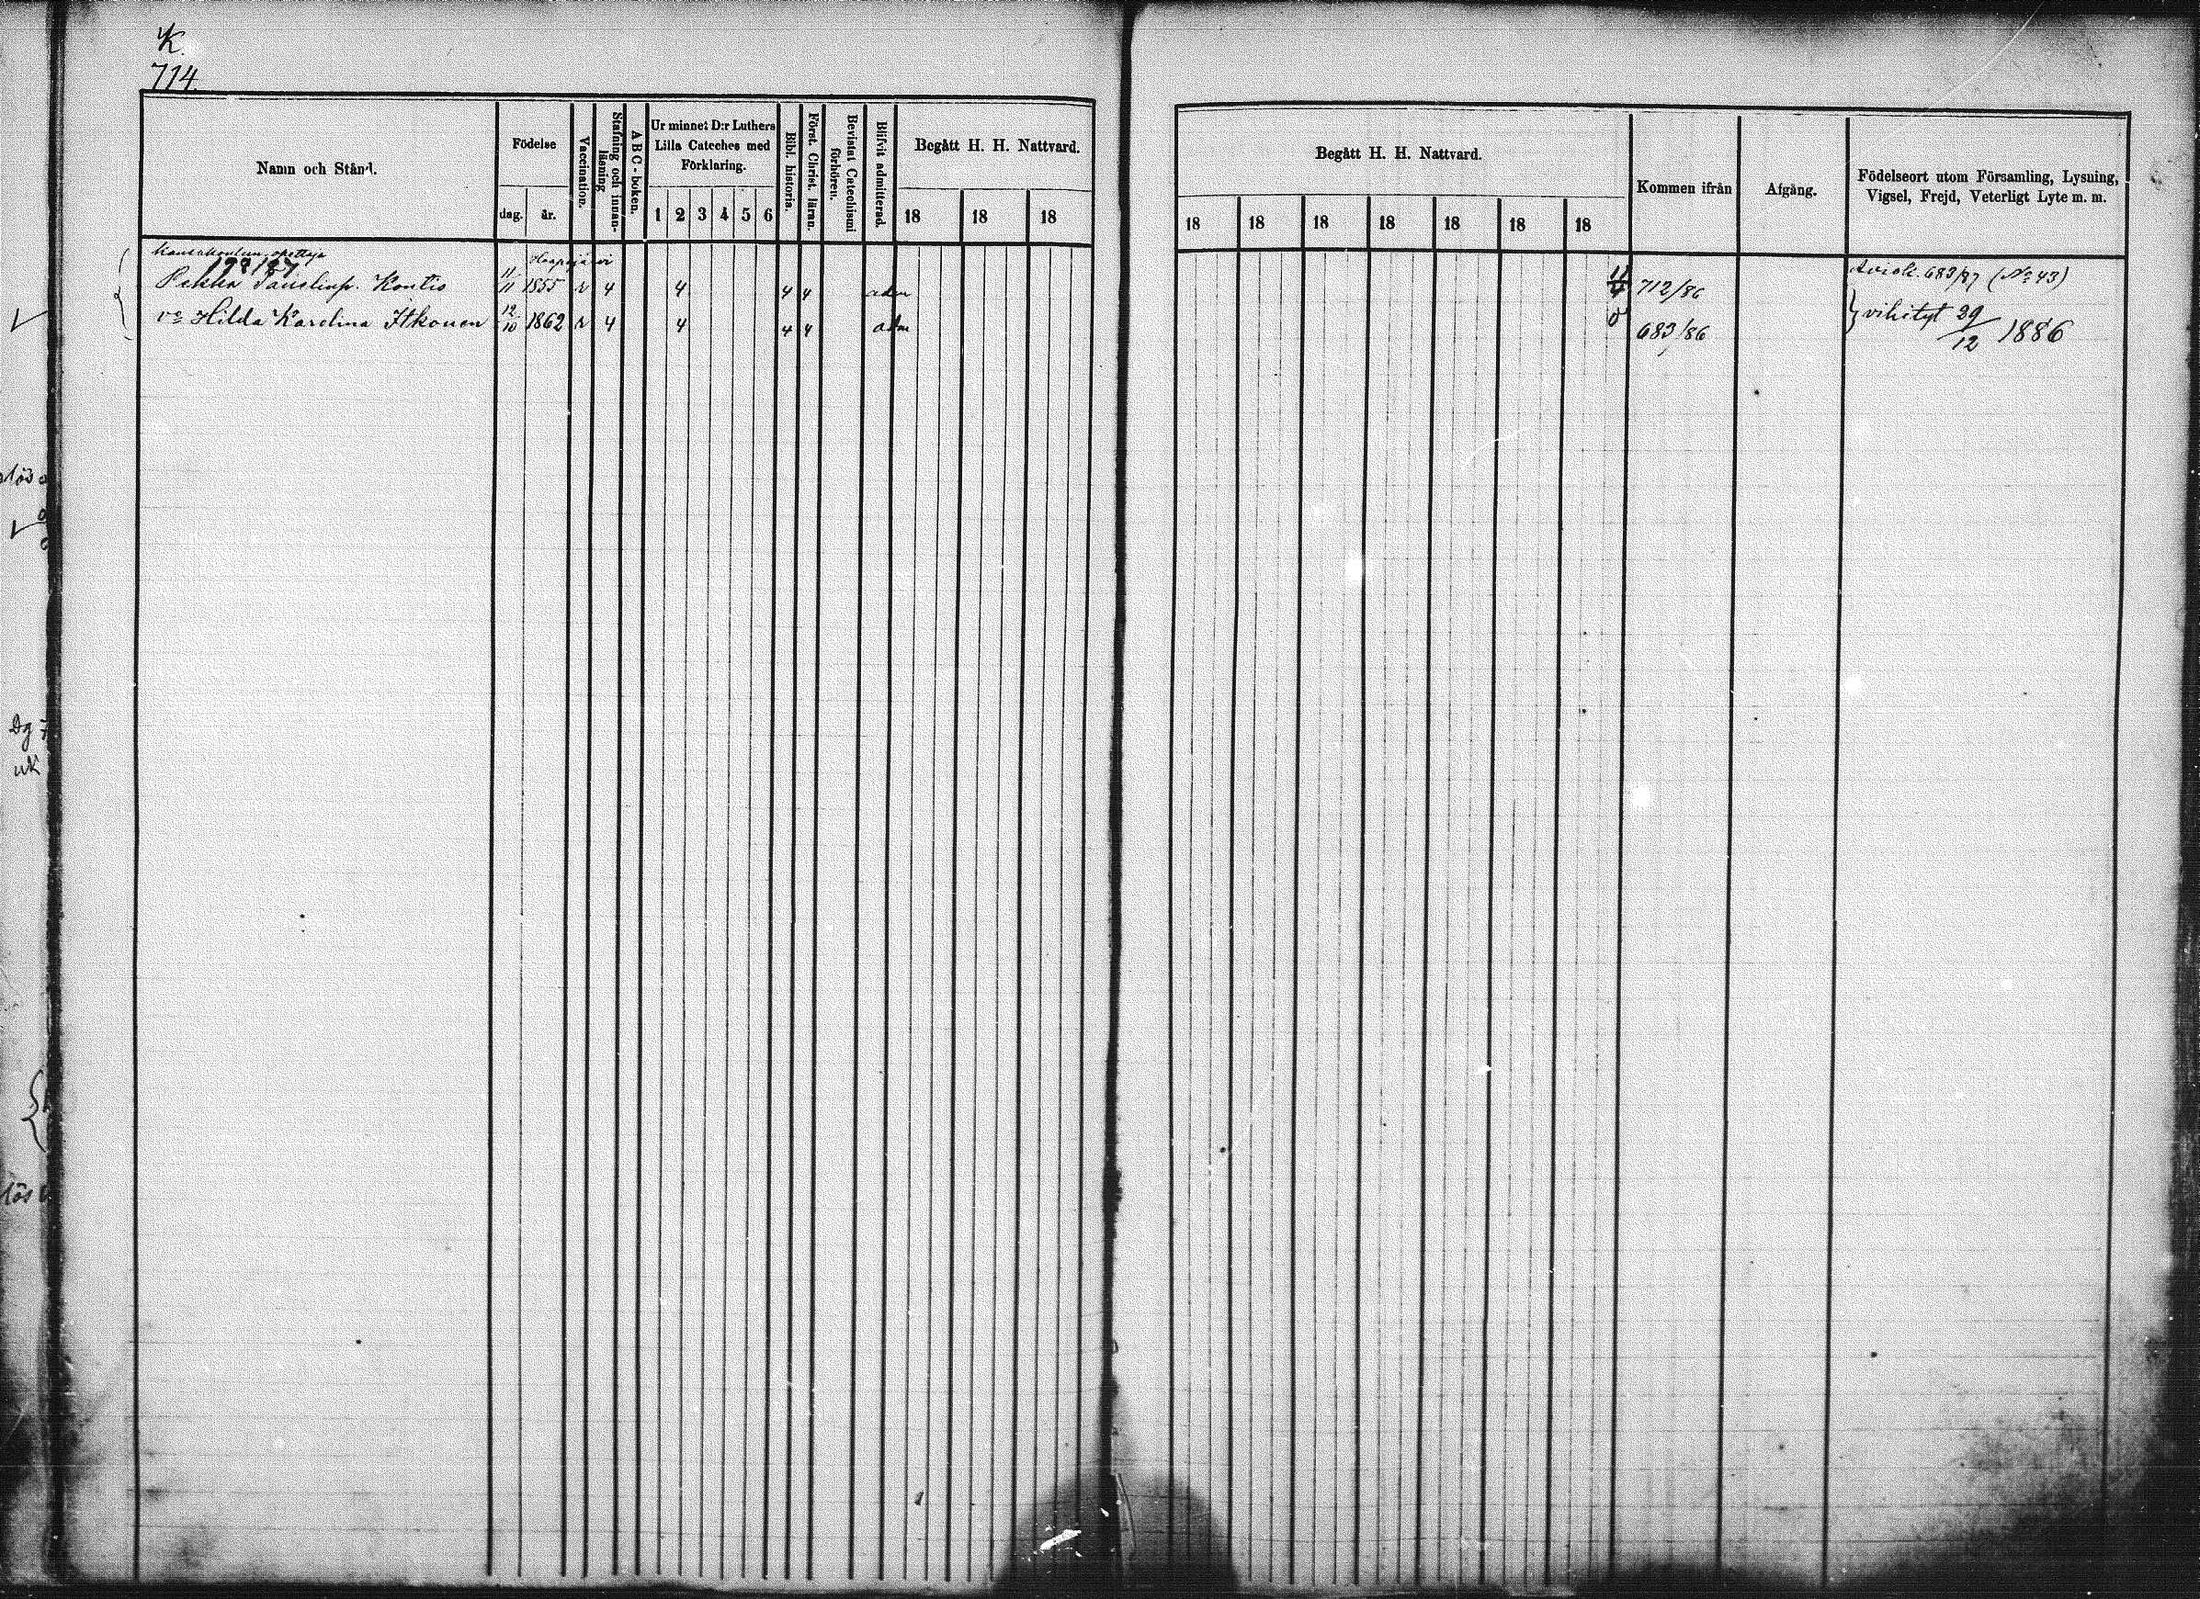 K.
714.
Namn och Stånd.
Födelse
dag.
år.
Vaccination.
Stafning och innan-
läsning
ABC-boken.
Ur minnet D:r Luthers
Lilla Cateches med
Förklaring.
1 2 3 4 5 6
Bibl. historia.
Först. Christ. läran.
Bevistat Catechismi
förhören.
Blifvit admitterad.
Begått H. H. Nattvard.
18 18 18
Begått H. H. Nattvard.
18 18 18 18 18 18 18
Kommen ifrån
Afgång.
Födelseort utom Församling, Lysning,
Vigsel, Frejd, Veterligt Lyte m. m.
Kansakoulun opettaja
Haapajärvi
Pekka Kontio 11/11 1855 4 4 4 4 adm 712/86
(No 43)
vo Hilda Karolina Itkonen 12/10 1862 4 4 4 4 adm 683/86
vihityt 29/12 1886
lös
Dg
uk
lös